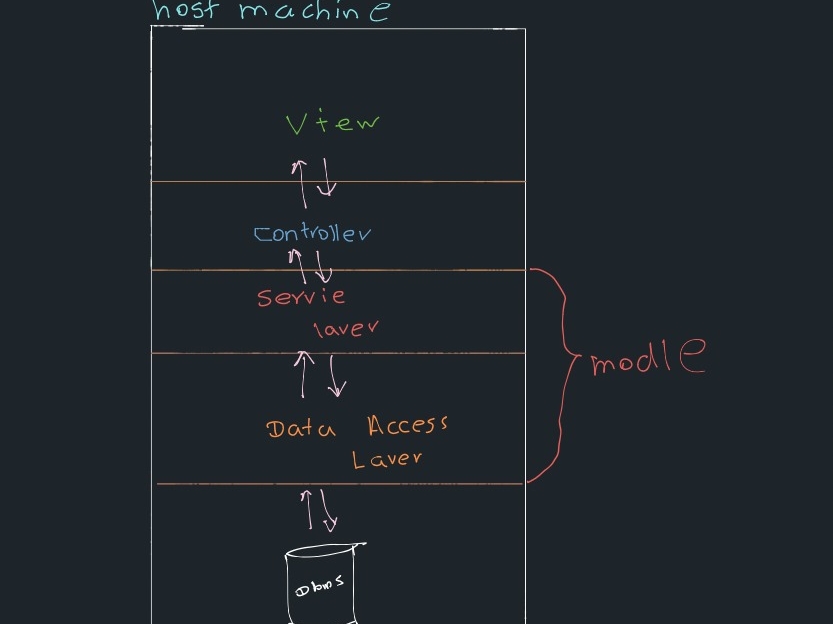 host machine
View
controller
Servie
laver
modle
Data Access
Laver
Dbms